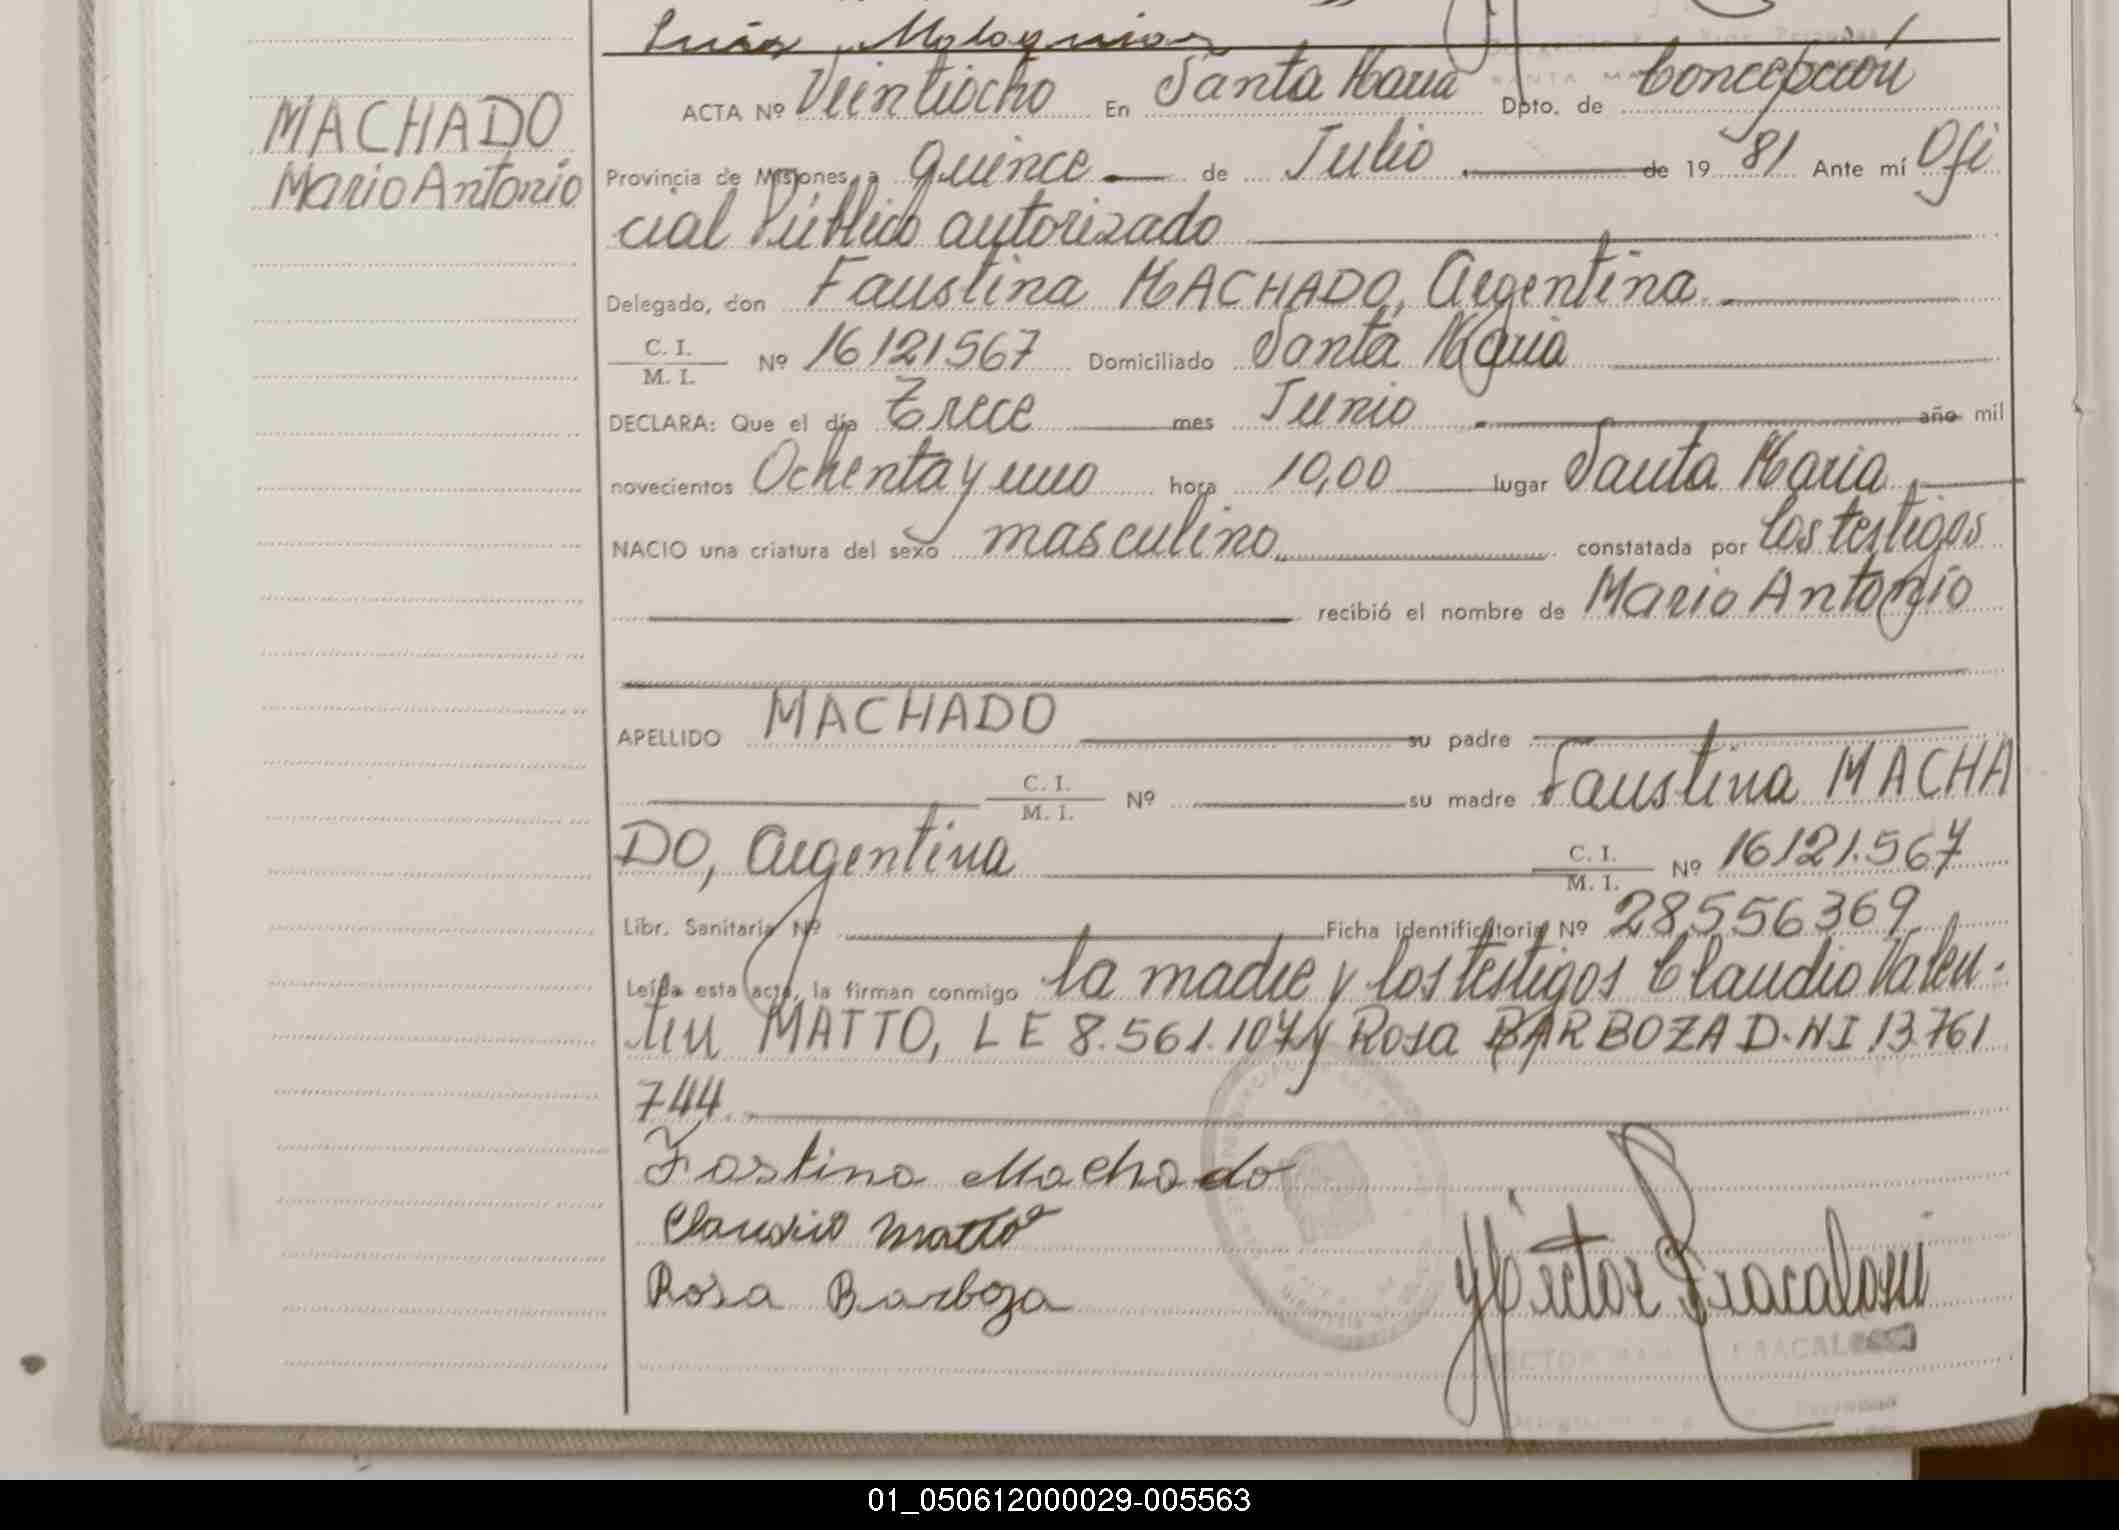 MACHADO
Mario Antonio
ACTA Nº Veintiocho En Santa Maria Dpto. de Concepción
Provincia de Misiones, a quince de Julio de 1981 Ante mí Ofi
cial Público autorizado
Delegado, don Faustina MACHADO, Argentina.
C. I.
M. I. Nº 16121567 Domiciliado Santa Maria
DECLARA: Que el día Trece mes Junio año mil
novecientos Ochenta y uno hora 10,00 lugar Santa Maria
NACIO una criatura del sexo masculino constatada por los testigos
recibió el nombre de Mario Antonio
APELLIDO MACHADO su padre
C. I.
M. I. Nº su madre Faustina MACHA
DO, Argentina C. I.
M. I. Nº 16121.567
Libr. Sanitaria Nº Ficha identificatoria Nº 28556369
Leída esta acta, la firman conmigo la madre y los testigos Claudio Valen-
tin MATTO, L E 8.561.107 y Rosa BARBOZA D.NI 13761
744.
Fastina Machado
Claudio Matto
Rosa Barboza
Héctor Fracalossi
01_050612000029-005563